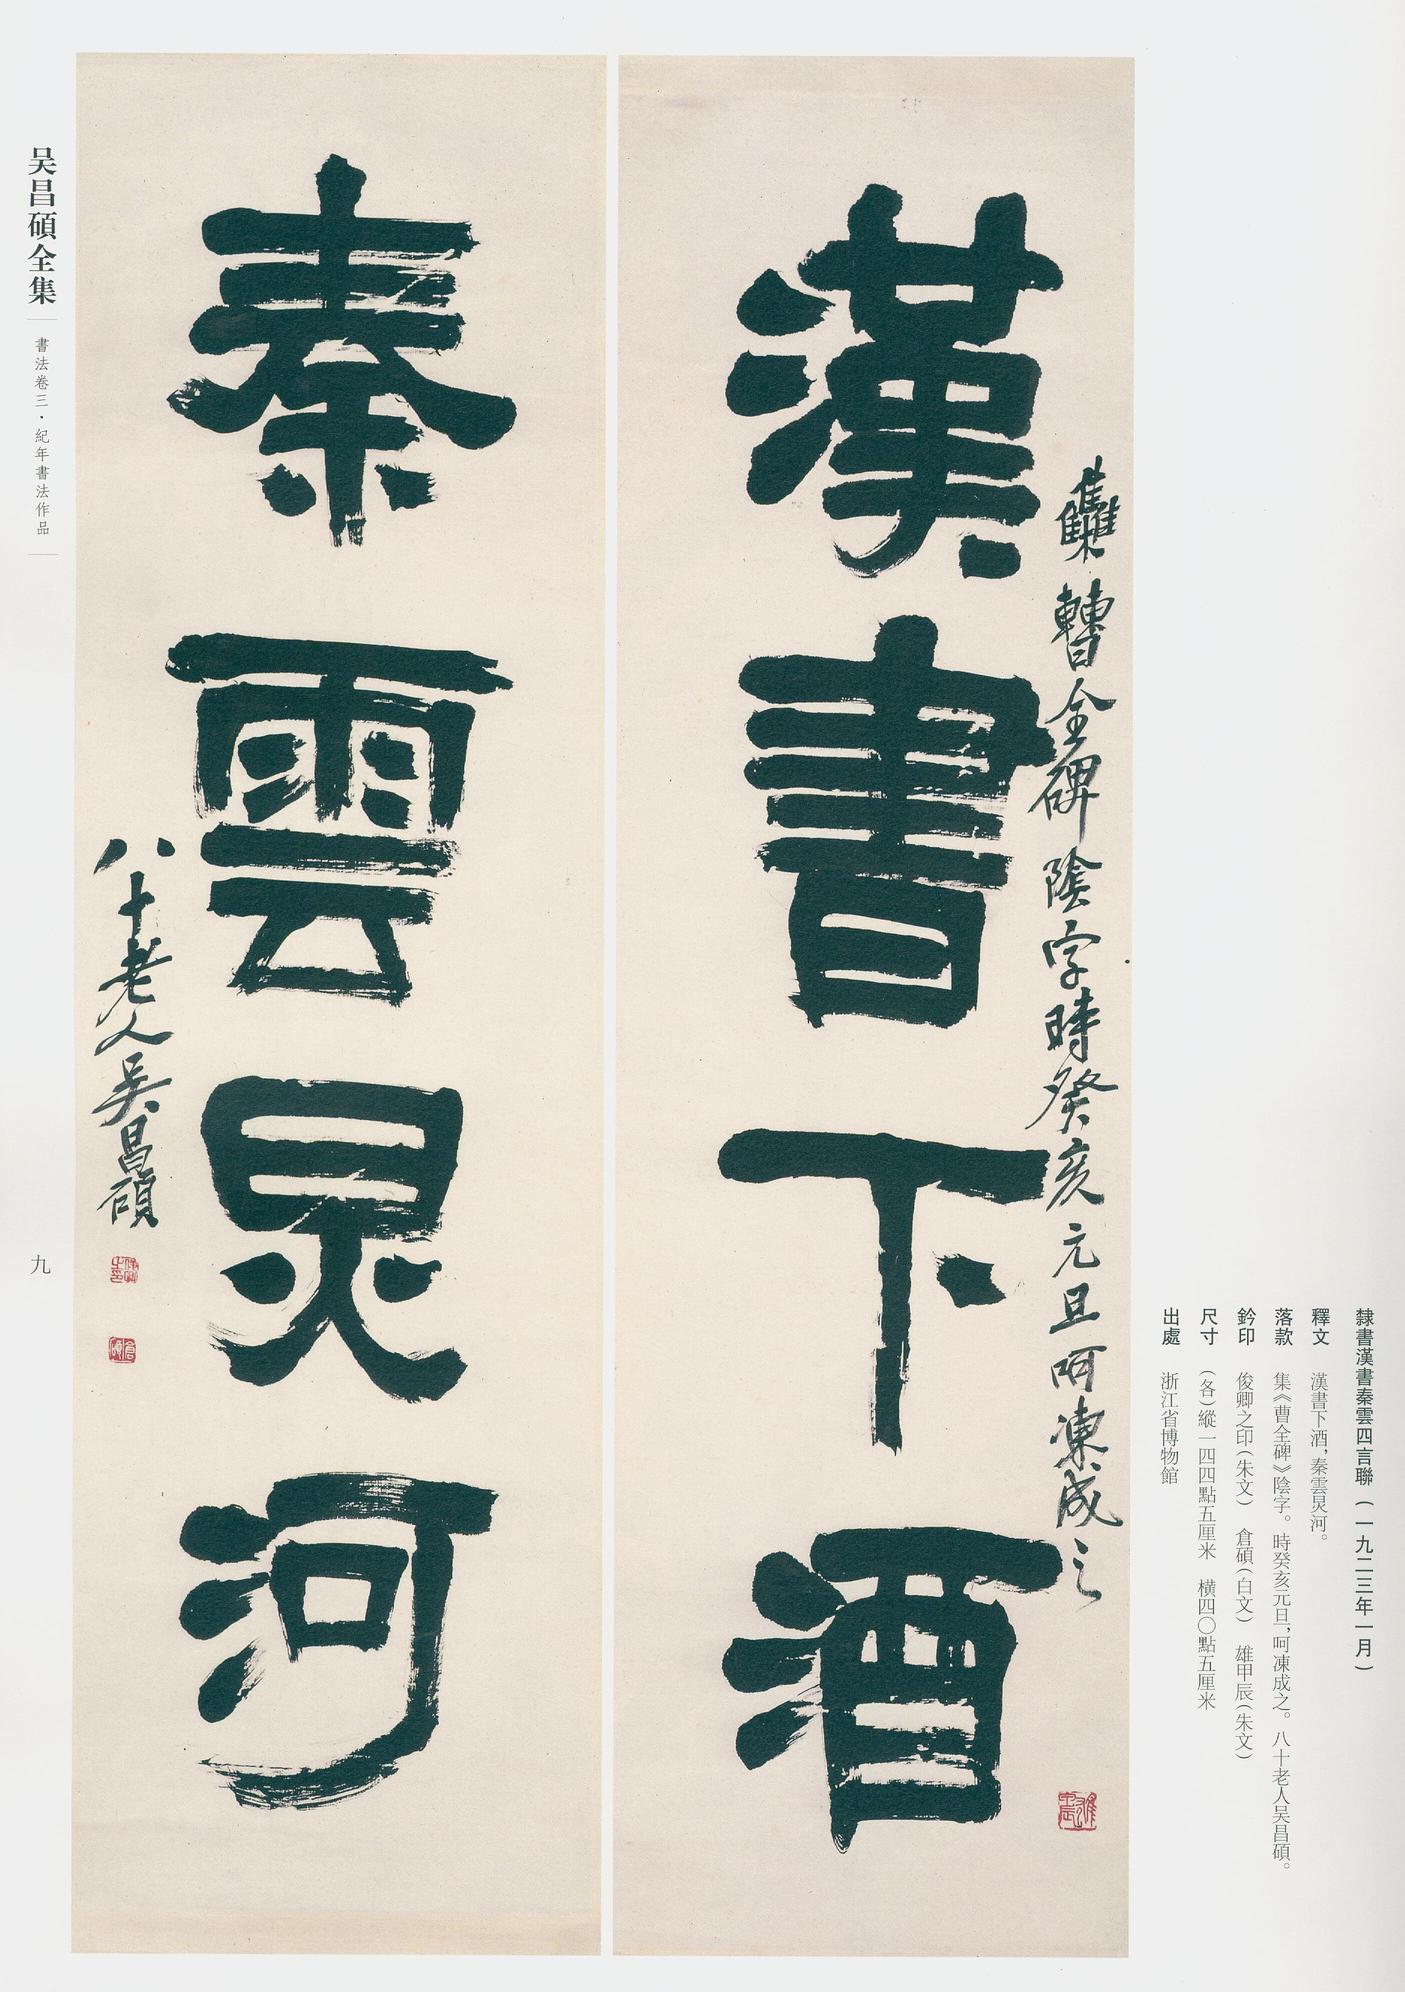 漢書下酒
雧轉曹全碑陰字時癸亥元旦呵凍成之
秦雲炅河
八十老人吴昌碩
隸書漢書秦雲四言聯（一九二三年一月）
釋文　漢書下酒，秦雲炅河。
落款　集《曹全碑》陰字。時癸亥元旦，呵凍成之。八十老人吴昌碩。
鈐印　俊卿之印（朱文）　倉碩（白文）　雄甲辰（朱文）
尺寸　（各）縱一四四點五厘米　橫四〇點五厘米
出處　浙江省博物館
吴昌碩全集
書法卷三·紀年書法作品
九